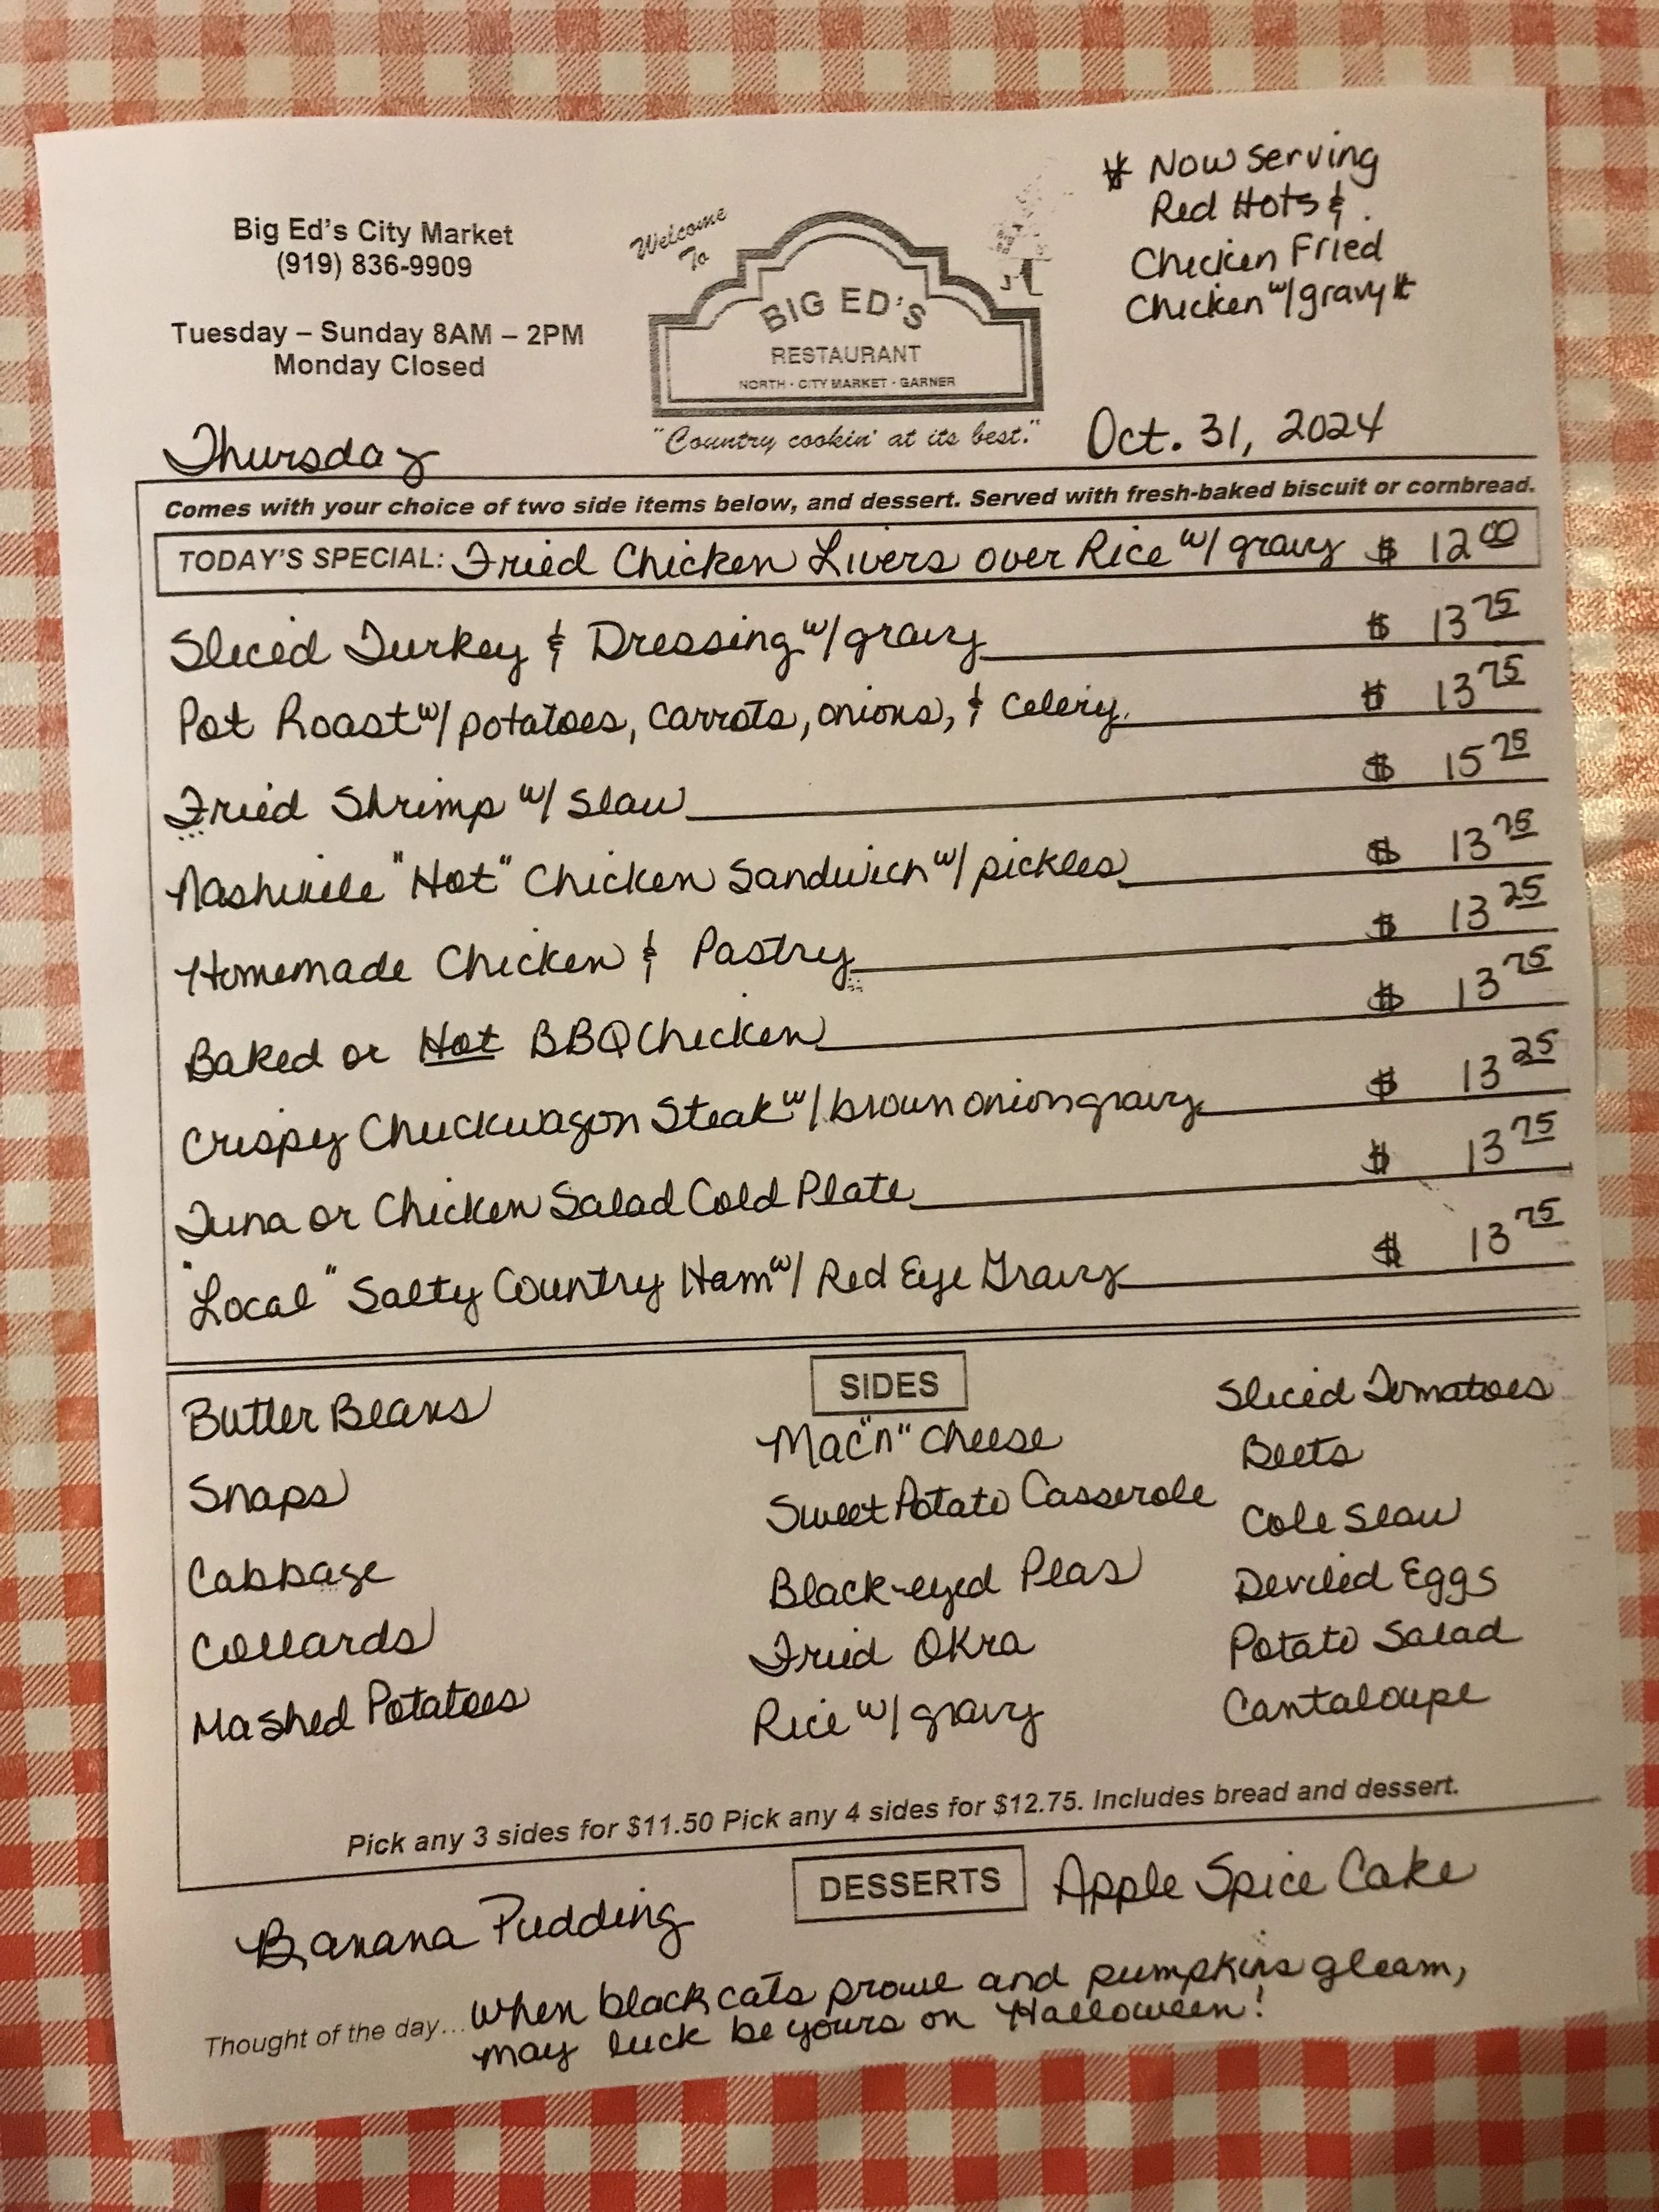 * Now Serving
Red Hots &
Chicken Fried
Chicken w/ gravy *
Big Ed's City Market
(919) 836-9909
Tuesday – Sunday 8AM – 2PM
Monday Closed
Welcome
To
BIG ED'S
RESTAURANT
NORTH · CITY MARKET · GARNER
"Country cookin' at its best."
Thursday
Oct. 31, 2024
Comes with your choice of two side items below, and dessert. Served with fresh-baked biscuit or cornbread.
TODAY'S SPECIAL: Fried Chicken Livers over Rice w/ gravy $ 12 00
Sliced Turkey & Dressing w/ gravy $ 13 75
Pot Roast w/ potatoes, carrots, onions, & celery $ 13 75
Fried Shrimp w/ slaw $ 15 75
Nashville "Hot" Chicken Sandwich w/ pickles $ 13 75
Homemade Chicken & Pastry $ 13 25
Baked or Hot BBQ Chicken $ 13 75
Crispy Chuckwagon Steak w/ brown onion gravy $ 13 25
Tuna or Chicken Salad Cold Plate $ 13 75
"Local" Salty Country Ham w/ Red Eye Gravy $ 13 75
SIDES
Butter Beans
Snaps
Cabbage
Collards
Mashed Potatoes
Mac "n" Cheese
Sweet Potato Casserole
Black-eyed Peas
Fried Okra
Rice w/ gravy
Sliced Tomatoes
Beets
Cole Slaw
Deviled Eggs
Potato Salad
Cantaloupe
Pick any 3 sides for $11.50 Pick any 4 sides for $12.75. Includes bread and dessert.
DESSERTS
Banana Pudding
Apple Spice Cake
Thought of the day... When black cats prowl and pumpkins gleam,
may luck be yours on Halloween!